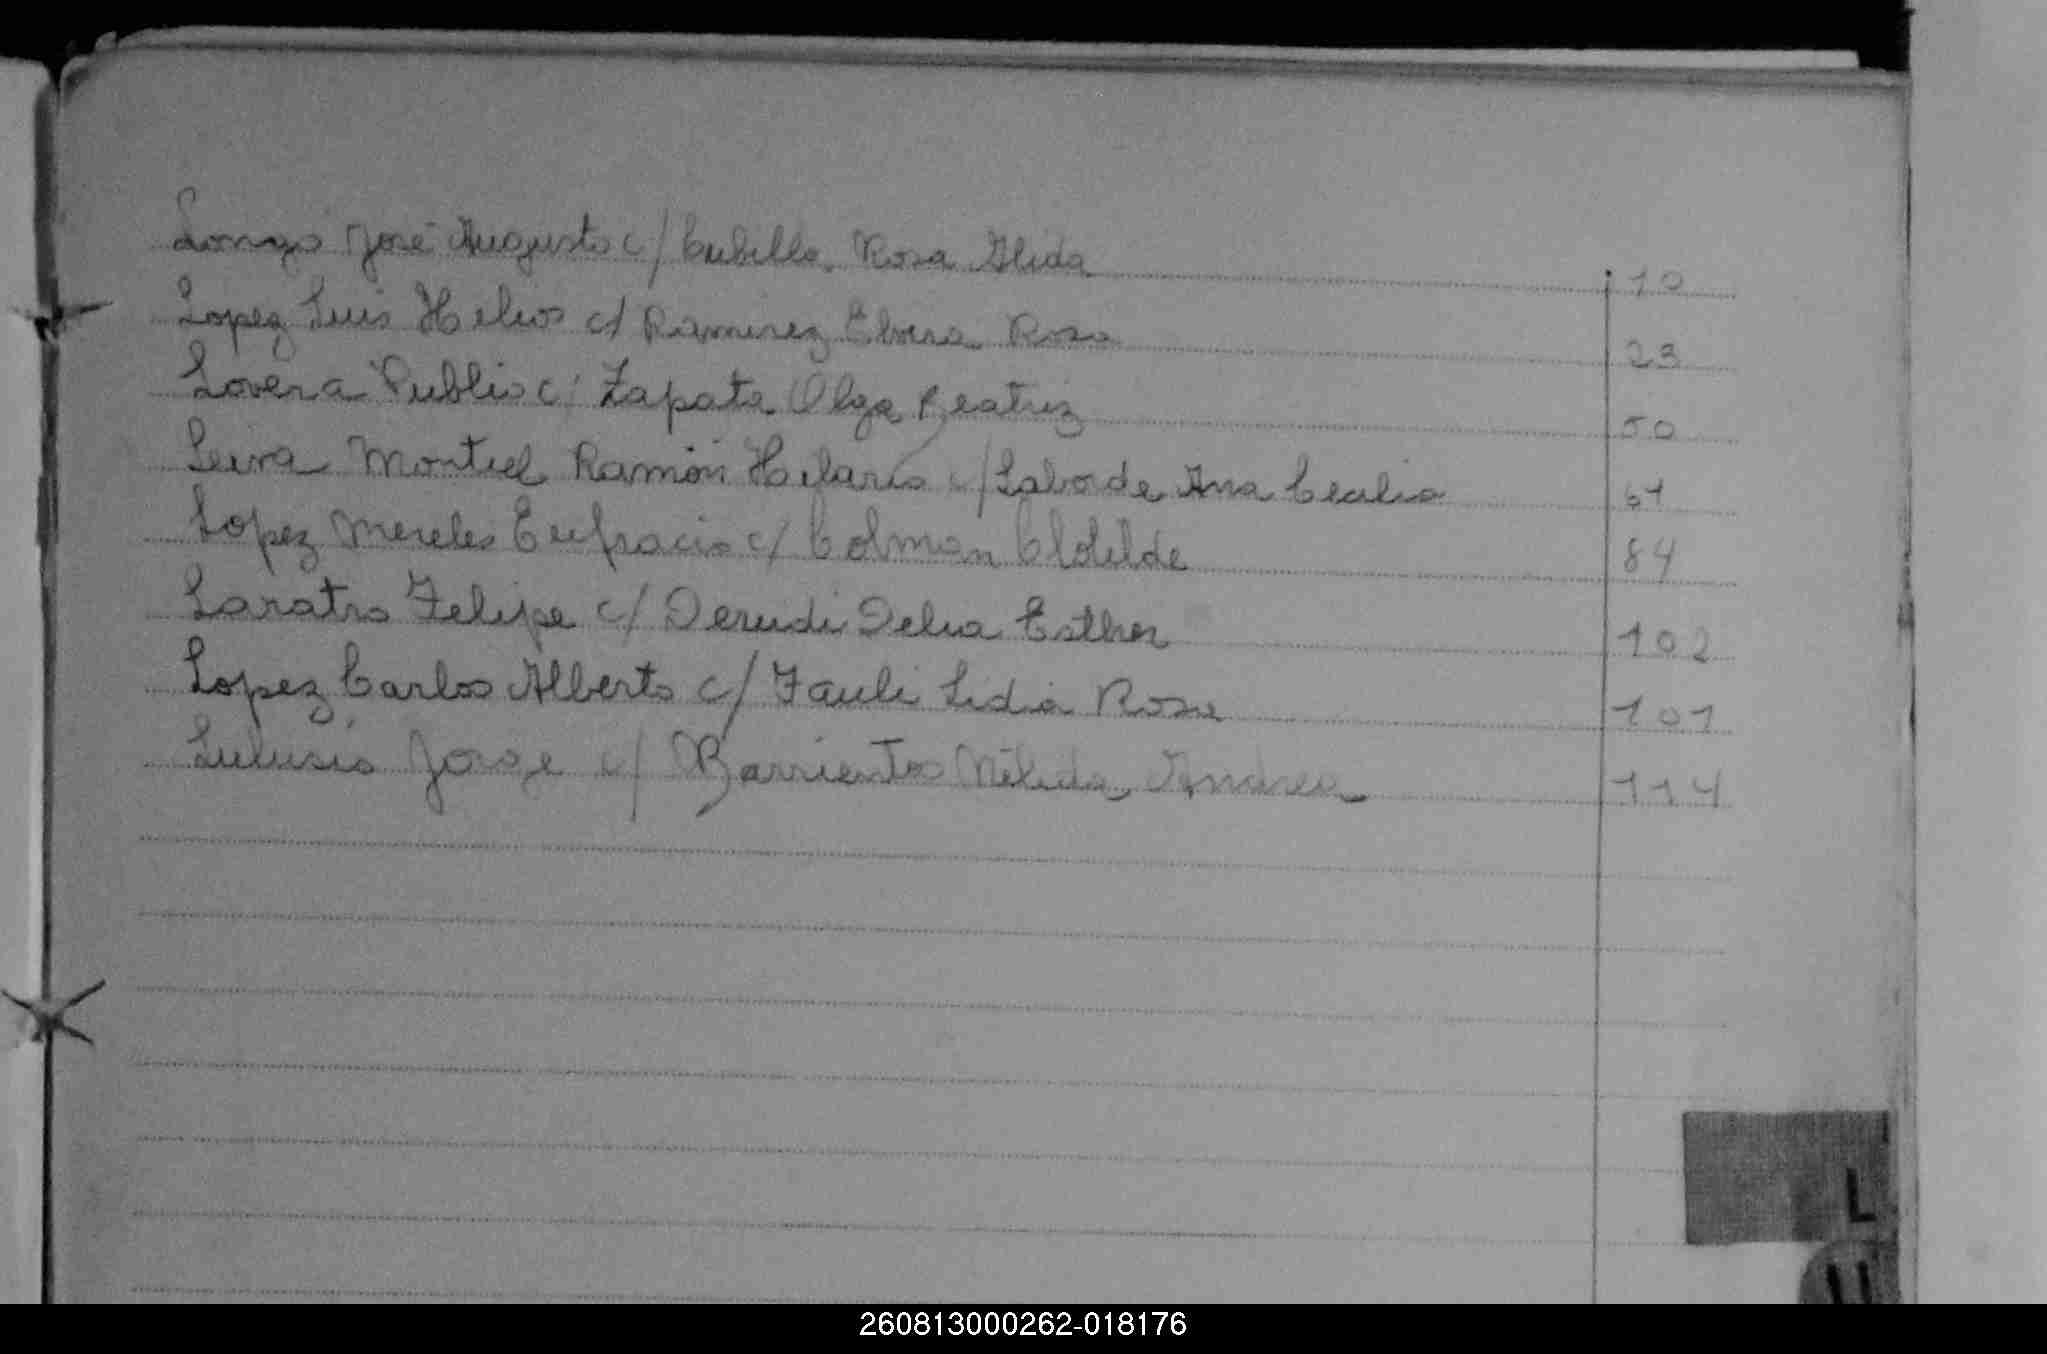 Longo José Augusto c/ Cubilla Rosa Elida 10
Lopez Luis Helios c/ Ramirez Elvira Rosa 23
Lovera Publio c/ Zapata Olga Beatriz 50
Leiva Montiel Ramón Hilario c/ Laborde Ana Cecilia 61
Lopez Mereles Eufracio c/ Colman Clotilde 84
Laratro Felipe c/ Delia Esther 102
Lopez Carlos Alberto c/ Fauli Lidia Rosa 101
Jorge c/ Barrientos Nélida Andrea 114
L
LL
260813000262-018176